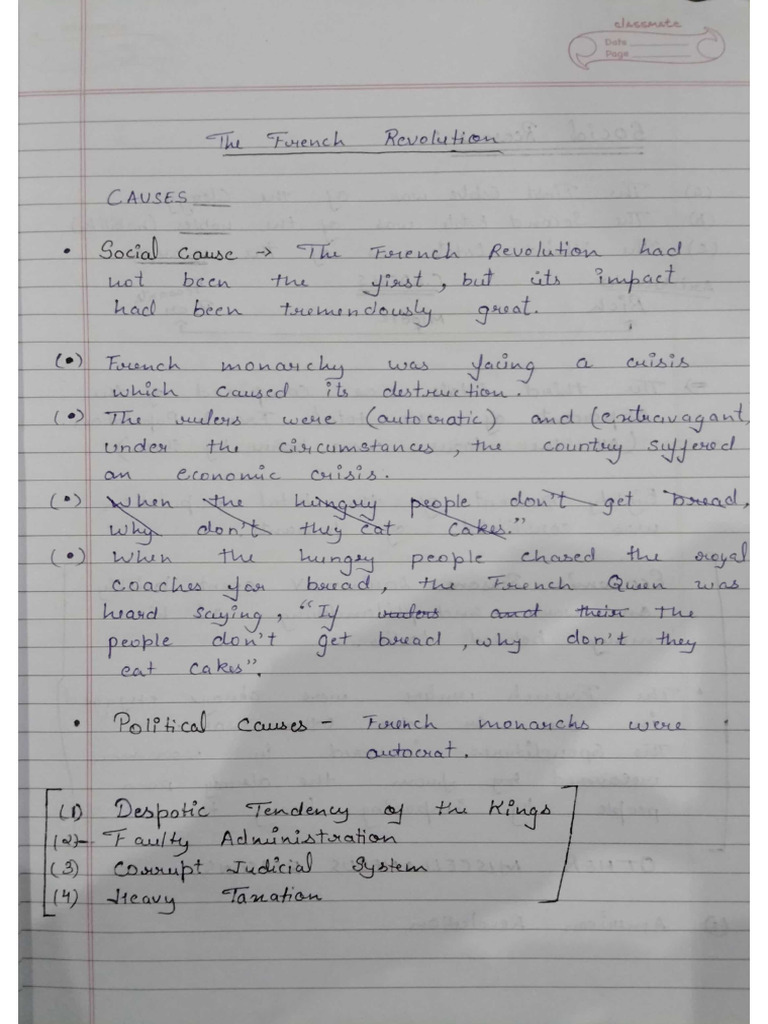 classmate
Date
Page
The French Revolution
CAUSES
• Social cause → The French Revolution had
not been the first, but its impact
had been tremendously great.
(•) French monarchy was facing a crisis
which caused its destruction.
(•) The rulers were (autocratic) and (extravagant,
under the circumstances, the country suffered
an economic crisis.
(•) When the hungry people don't get bread,
why don't they eat cakes."
(•) When the hungry people chased the royal
coaches for bread, the French Queen was
heard saying, "If rulers and their the
people don't get bread, why don't they
eat cakes".
• Political Causes - French monarchs were
autocrat.
(1) Despotic Tendency of the Kings
(2) - Faulty Administration
(3) Corrupt Judicial System
(4) Heavy Taxation